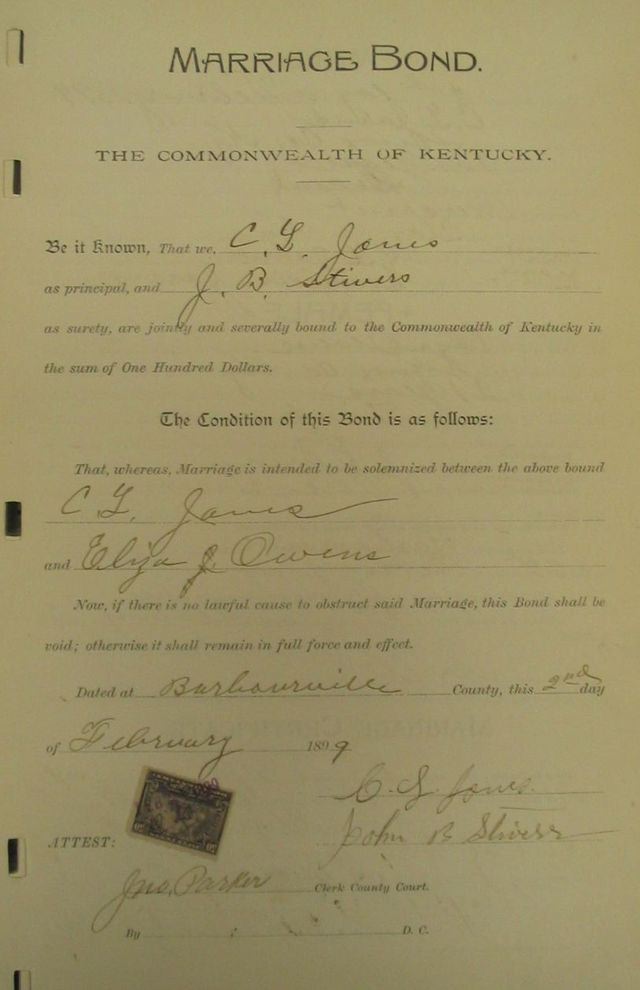 MARRIAGE BOND.
THE COMMONWEALTH OF KENTUCKY.
Be it Known, That we, C. G. Jones
as principal, and J. B. Stivers
as surety, are jointly and severally bound to the Commonwealth of Kentucky in
the sum of One Hundred Dollars.
The Condition of this Bond is as follows:
That, whereas, Marriage is intended to be solemnized between the above bound
C G. Jones
and Eliza J. Owens
Now, if there is no lawful cause to obstruct said Marriage, this Bond shall be
void; otherwise it shall remain in full force and effect.
Dated at Barbourville County, this 2nd day
of February 1899
C. G. Jones
John B Stivers
ATTEST:
Jno. Parker Clerk County Court.
By D. C.